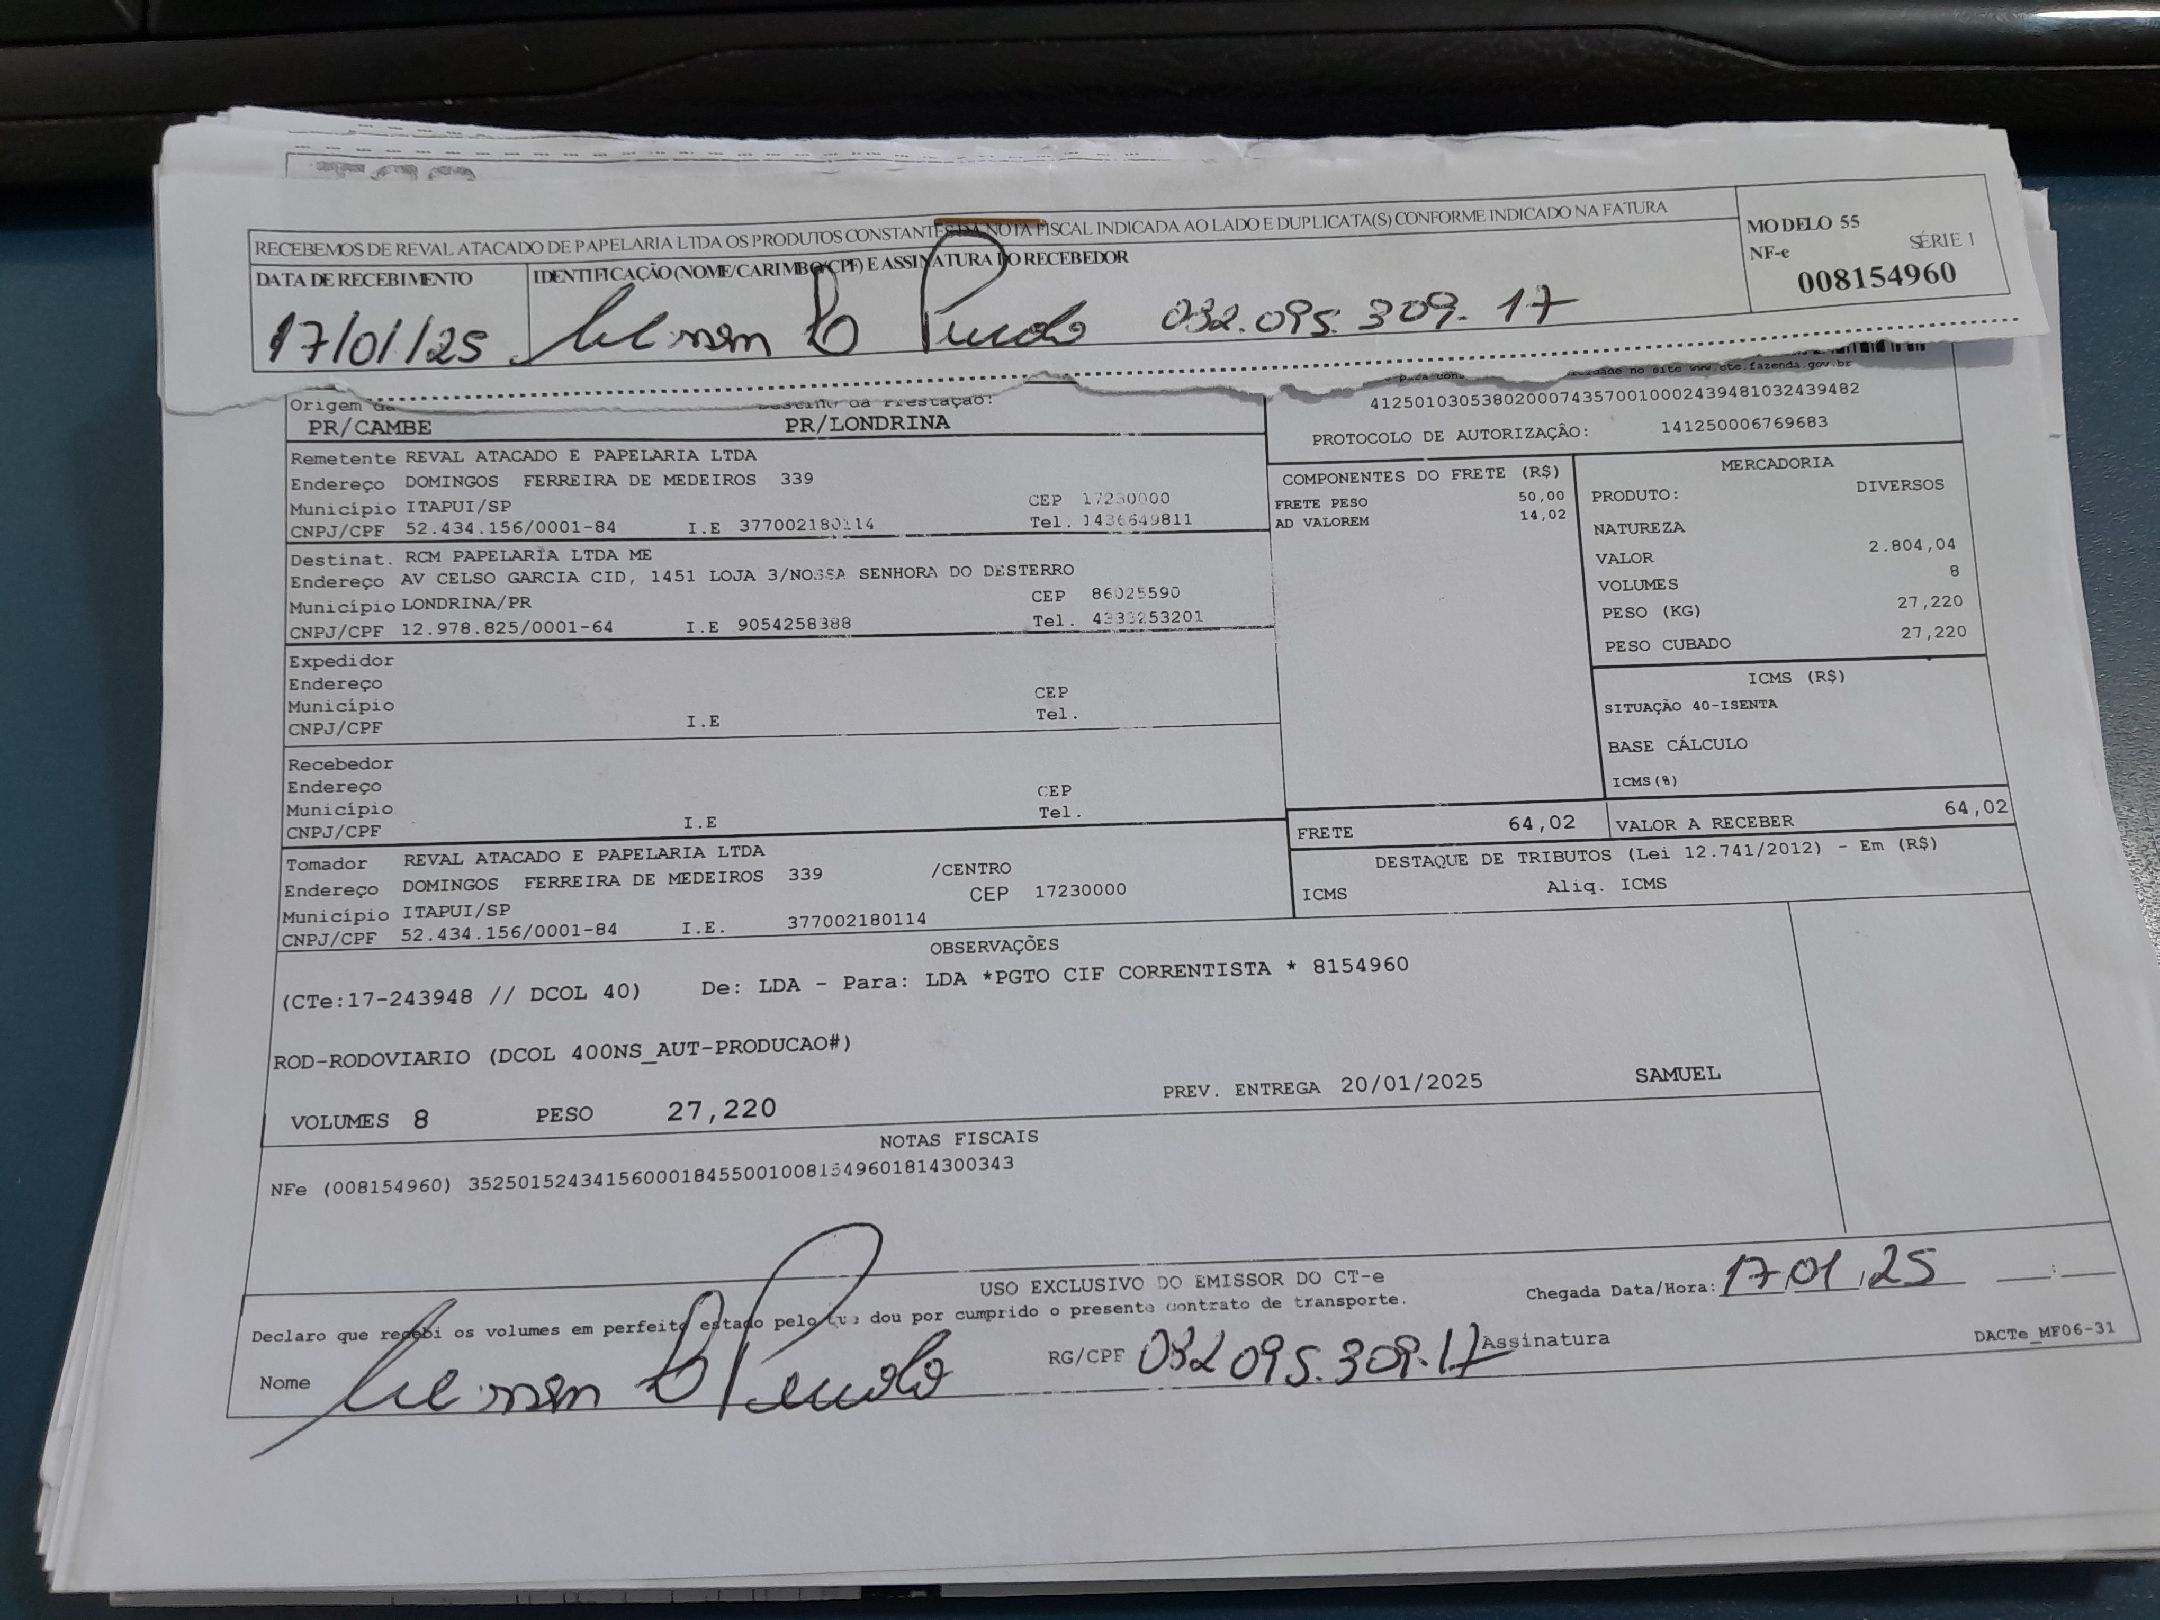 RECEBEMOS DE REVAL ATACADO DE PAPELARIA LTDA OS PRODUTOS CONSTANTES DA NOTA FISCAL INDICADA AO LADO E DUPLICATA(S) CONFORME INDICADO NA FATURA
MODELO 55
NF-e SÉRIE 1
008154960
DATA DE RECEBIMENTO
IDENTIFICAÇÃO (NOME/CARIMBO/CPF) E ASSINATURA DO RECEBEDOR
17/01/25
032.095.309.17
no site www.cte.fazenda.gov.br
41250103053802000743570010002439481032439482
Origem da
Prestação:
PR/CAMBE PR/LONDRINA
PROTOCOLO DE AUTORIZAÇÃO: 141250006769683
Remetente REVAL ATACADO E PAPELARIA LTDA
Endereço DOMINGOS FERREIRA DE MEDEIROS 339
Município ITAPUI/SP CEP 17230000
CNPJ/CPF 52.434.156/0001-84 I.E 377002180114 Tel. 1436649811
COMPONENTES DO FRETE (R$)
FRETE PESO 50,00
AD VALOREM 14,02
MERCADORIA
PRODUTO: DIVERSOS
NATUREZA
VALOR 2.804,04
VOLUMES 8
PESO (KG) 27,220
PESO CUBADO 27,220
Destinat. RCM PAPELARIA LTDA ME
Endereço AV CELSO GARCIA CID, 1451 LOJA 3/NOSSA SENHORA DO DESTERRO
Município LONDRINA/PR CEP 86025590
CNPJ/CPF 12.978.825/0001-64 I.E 9054258388 Tel. 4333253201
Expedidor
Endereço
Município CEP
CNPJ/CPF I.E Tel.
ICMS (R$)
SITUAÇÃO 40-ISENTA
BASE CÁLCULO
ICMS(%)
Recebedor
Endereço
Município CEP
CNPJ/CPF I.E Tel.
FRETE 64,02 VALOR A RECEBER 64,02
Tomador REVAL ATACADO E PAPELARIA LTDA
Endereço DOMINGOS FERREIRA DE MEDEIROS 339 /CENTRO
Município ITAPUI/SP CEP 17230000
CNPJ/CPF 52.434.156/0001-84 I.E. 377002180114
DESTAQUE DE TRIBUTOS (Lei 12.741/2012) - Em (R$)
ICMS Aliq. ICMS
OBSERVAÇÕES
(CTe:17-243948 // DCOL 40) De: LDA - Para: LDA *PGTO CIF CORRENTISTA * 8154960
ROD-RODOVIARIO (DCOL 400NS_AUT-PRODUCAO#)
VOLUMES 8 PESO 27,220 PREV. ENTREGA 20/01/2025 SAMUEL
NOTAS FISCAIS
NFe (008154960) 35250152434156000184550010081549601814300343
USO EXCLUSIVO DO EMISSOR DO CT-e
Declaro que recebi os volumes em perfeito estado pelo que dou por cumprido o presente contrato de transporte.
Chegada Data/Hora: 17/01/25 __:__
Nome RG/CPF 032 095.309.17 Assinatura
DACTe_MF06-31